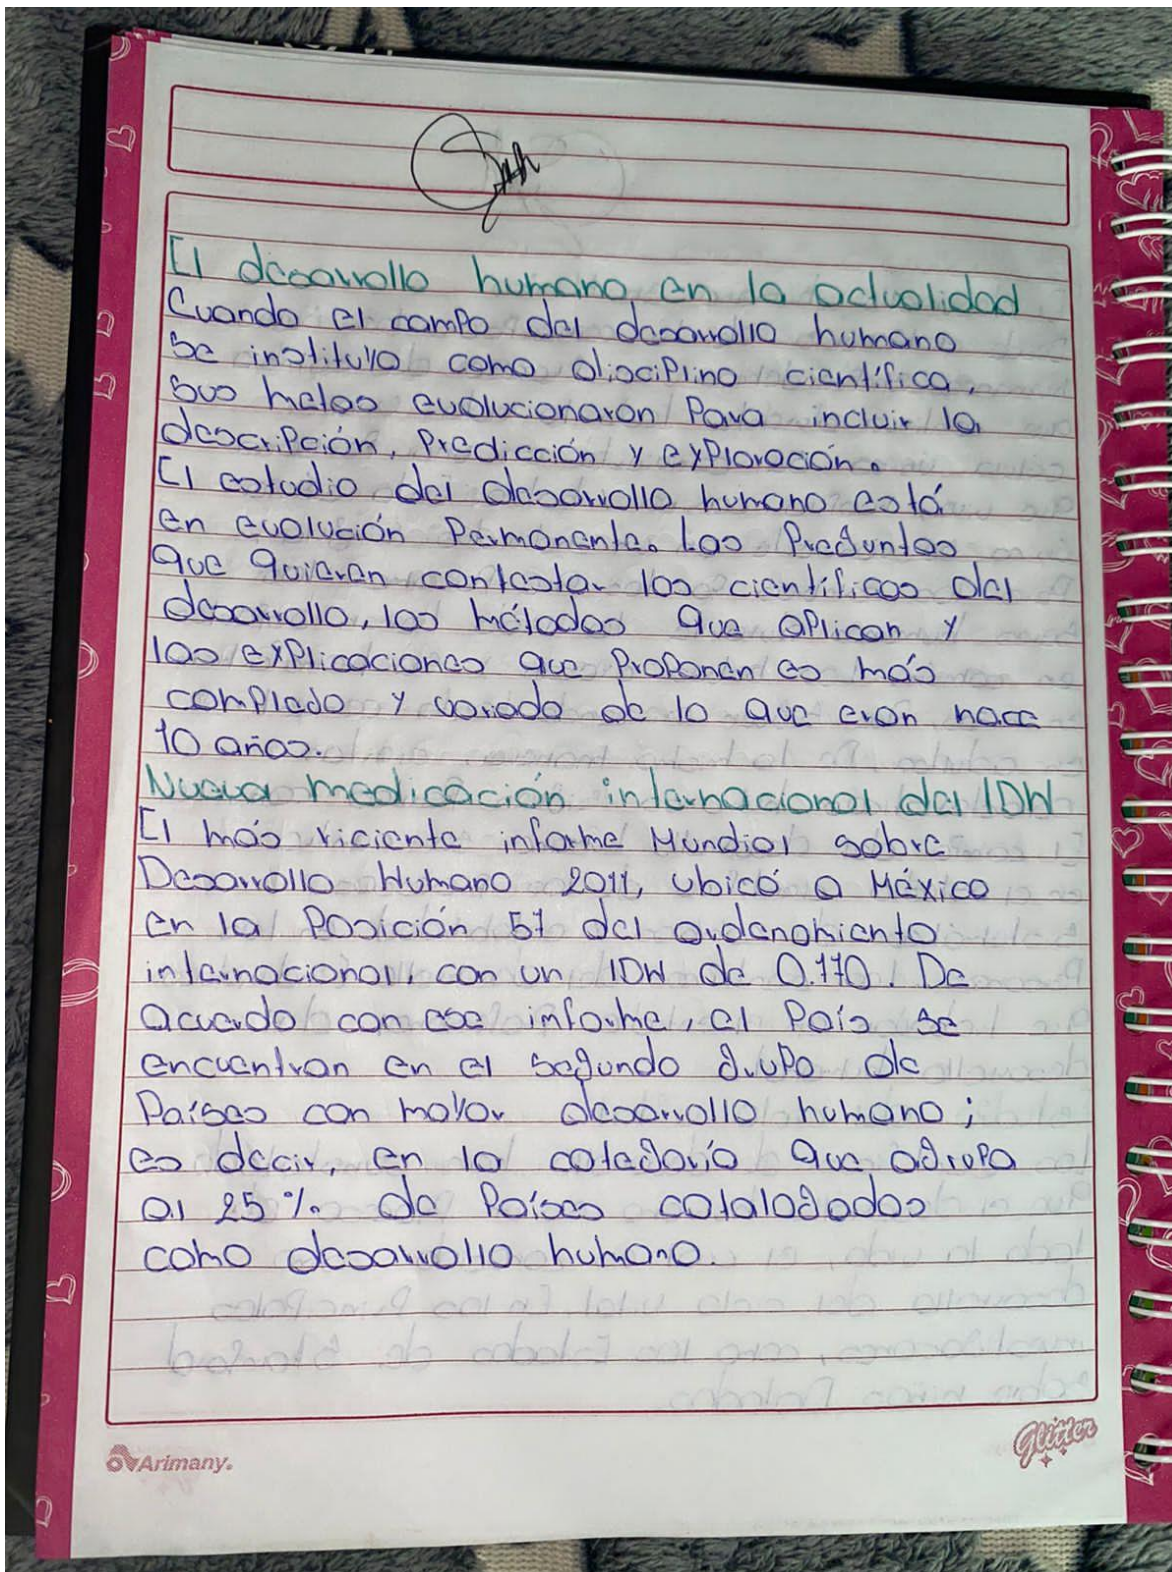 El desarrollo humano en la actualidad
Cuando el campo del desarrollo humano
se instituyo como disciplina científica,
sus metas evolucionaron Para incluir la
descripción, Predicción y exploración.
El estudio del desarrollo humano está
en evolución Permanente. Las Preguntas
que quieren contestar los científicos del
desarrollo, los métodos que aplican y
las explicaciones que Proponen es más
complejo y variado de lo que eran hace
10 años.
Nueva medicación internacional del IDH
El más riciente informe Mundial sobre
Desarrollo Humano 2011, ubicó a México
en la Posición 57 del ordenamiento
internacional, con un IDH de 0.770. De
acuerdo con ese informe, el País se
encuentran en el segundo grupo de
Países con mayor desarrollo humano;
es decir, en la categoría que agrupa
al 25 % de Países catalogados
como desarrollo humano.
Arimany.
Glitter